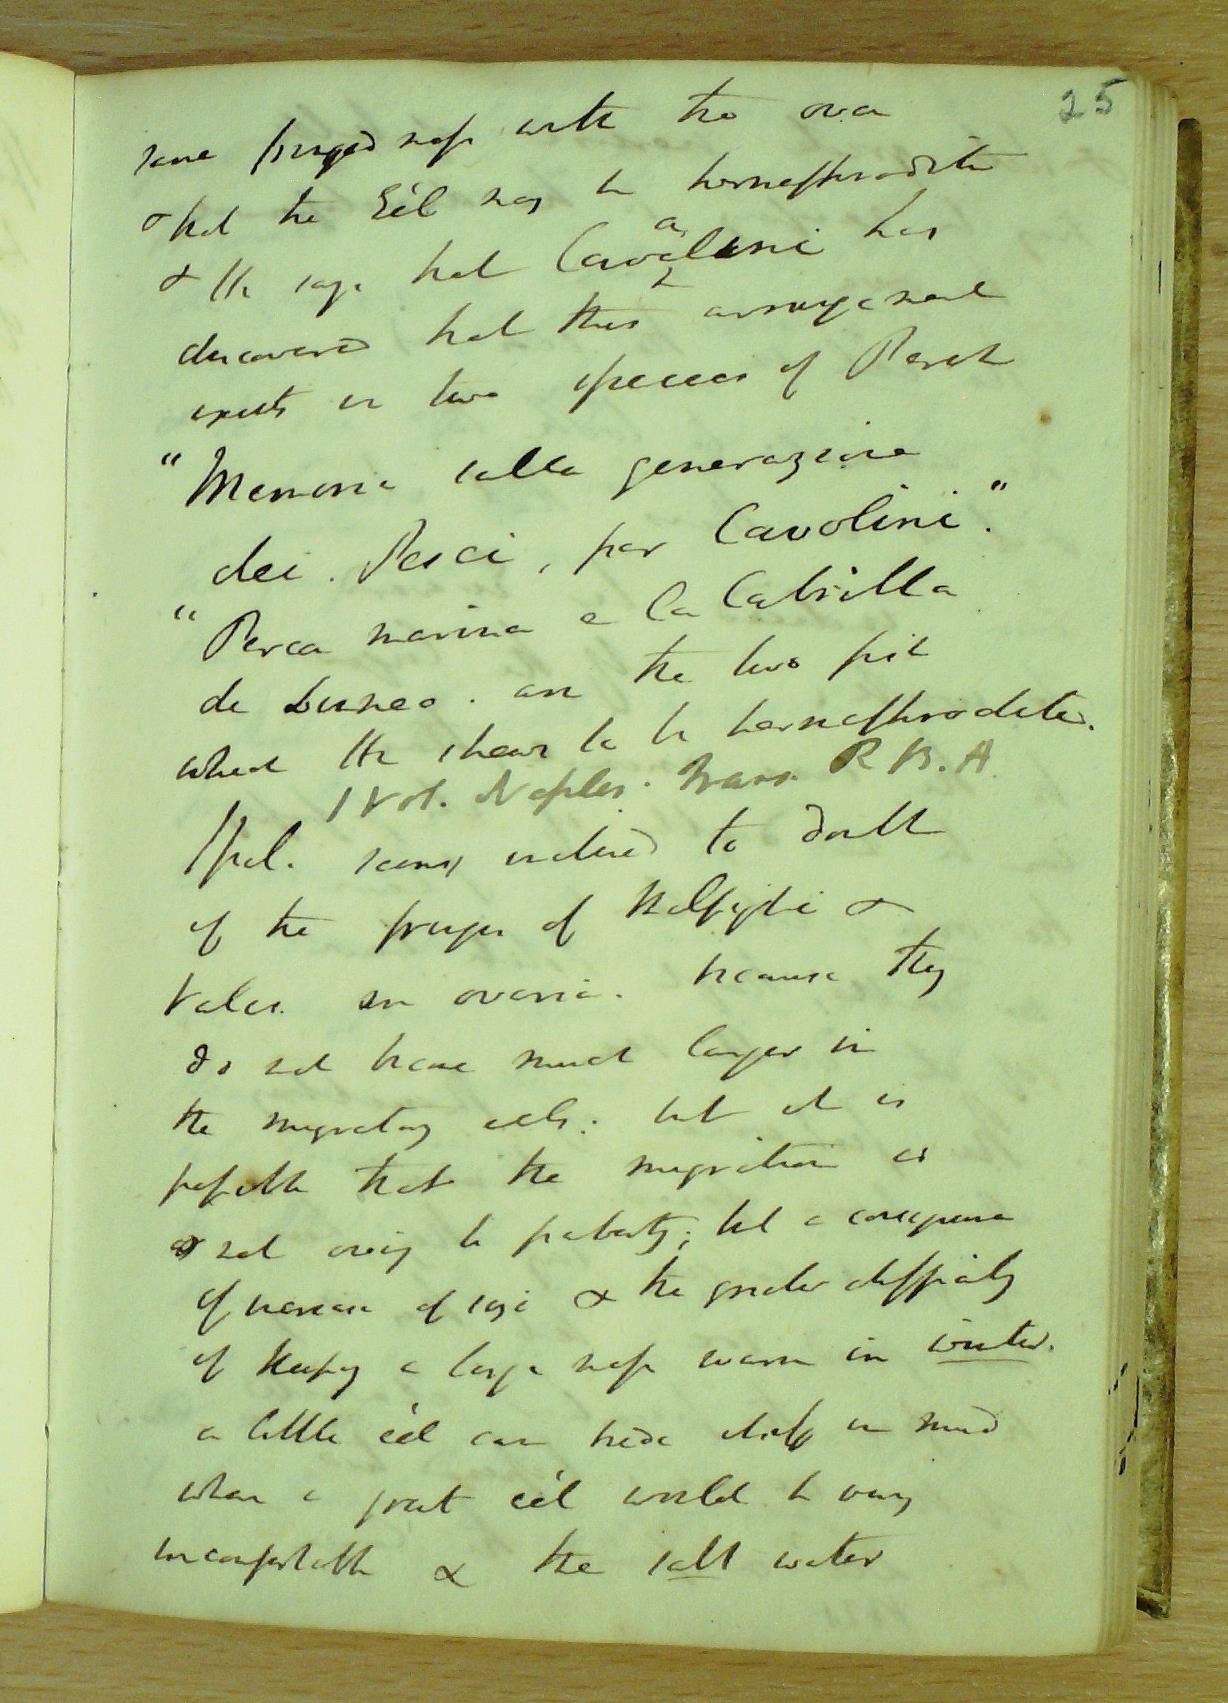 25
same fringed mass with the ova
& that the Eél may be hermaphrodite
& He says that Cavalini has
discovered that this arrangement
exists in two species of Perch
"Memoria sulla generazione
dei Pesci, par Cavolini."
"Perca marina e la Cabrilla
de are the two fish
which He shews to be hermaphrodites.
1 Vol. Naples. Trans. R B. A.
Spal. seems inclined to doubt
of the fringes of Malpighi &
Vales. as ovaria. because they
do not become much larger in
the migratory eels: but it is
possible that the migration is
not owing to puberty; but a consequence
of increase of size & the greater difficulty
of keeping a large mass warm in winter.
a little éel can hide itself in mud
when a great éel would be very
uncomfortable & the salt water